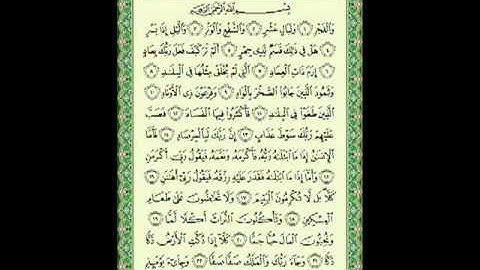 بِسْمِ ٱللَّهِ ٱلرَّحْمَٰنِ ٱلرَّحِيمِ
وَٱلْفَجْرِ ١ وَلَيَالٍ عَشْرٍ ٢ وَٱلشَّفْعِ وَٱلْوَتْرِ ٣ وَٱلَّيْلِ إِذَا يَسْرِ
٤ هَلْ فِي ذَٰلِكَ قَسَمٌ لِّذِي حِجْرٍ ٥ أَلَمْ تَرَ كَيْفَ فَعَلَ رَبُّكَ بِعَادٍ
٦ إِرَمَ ذَاتِ ٱلْعِمَادِ ٧ ٱلَّتِي لَمْ يُخْلَقْ مِثْلُهَا فِي ٱلْبِلَٰدِ ٨
وَثَمُودَ ٱلَّذِينَ جَابُوا۟ ٱلصَّخْرَ بِٱلْوَادِ ٩ وَفِرْعَوْنَ ذِي ٱلْأَوْتَادِ ١٠
ٱلَّذِينَ طَغَوْا۟ فِي ٱلْبِلَٰدِ ١١ فَأَكْثَرُوا۟ فِيهَا ٱلْفَسَادَ ١٢ فَصَبَّ
عَلَيْهِمْ رَبُّكَ سَوْطَ عَذَابٍ ١٣ إِنَّ رَبَّكَ لَبِٱلْمِرْصَادِ ١٤ فَأَمَّا
ٱلْإِنسَٰنُ إِذَا مَا ٱبْتَلَىٰهُ رَبُّهُۥ فَأَكْرَمَهُۥ وَنَعَّمَهُۥ فَيَقُولُ رَبِّي أَكْرَمَنِ
١٥ وَأَمَّا إِذَا مَا ٱبْتَلَىٰهُ فَقَدَرَ عَلَيْهِ رِزْقَهُۥ فَيَقُولُ رَبِّي أَهَٰنَنِ ١٦
كَلَّا بَل لَّا تُكْرِمُونَ ٱلْيَتِيمَ ١٧ وَلَا تَحَٰٓضُّونَ عَلَىٰ طَعَامِ
ٱلْمِسْكِينِ ١٨ وَتَأْكُلُونَ ٱلتُّرَاثَ أَكْلًا لَّمًّا ١٩
وَتُحِبُّونَ ٱلْمَالَ حُبًّا جَمًّا ٢٠ كَلَّا إِذَا دُكَّتِ ٱلْأَرْضُ دَكًّا
دَكًّا ٢١ وَجَاءَ رَبُّكَ وَٱلْمَلَكُ صَفًّا صَفًّا ٢٢ وَجِا۟يٓءَ يَوْمَئِذٍۭ